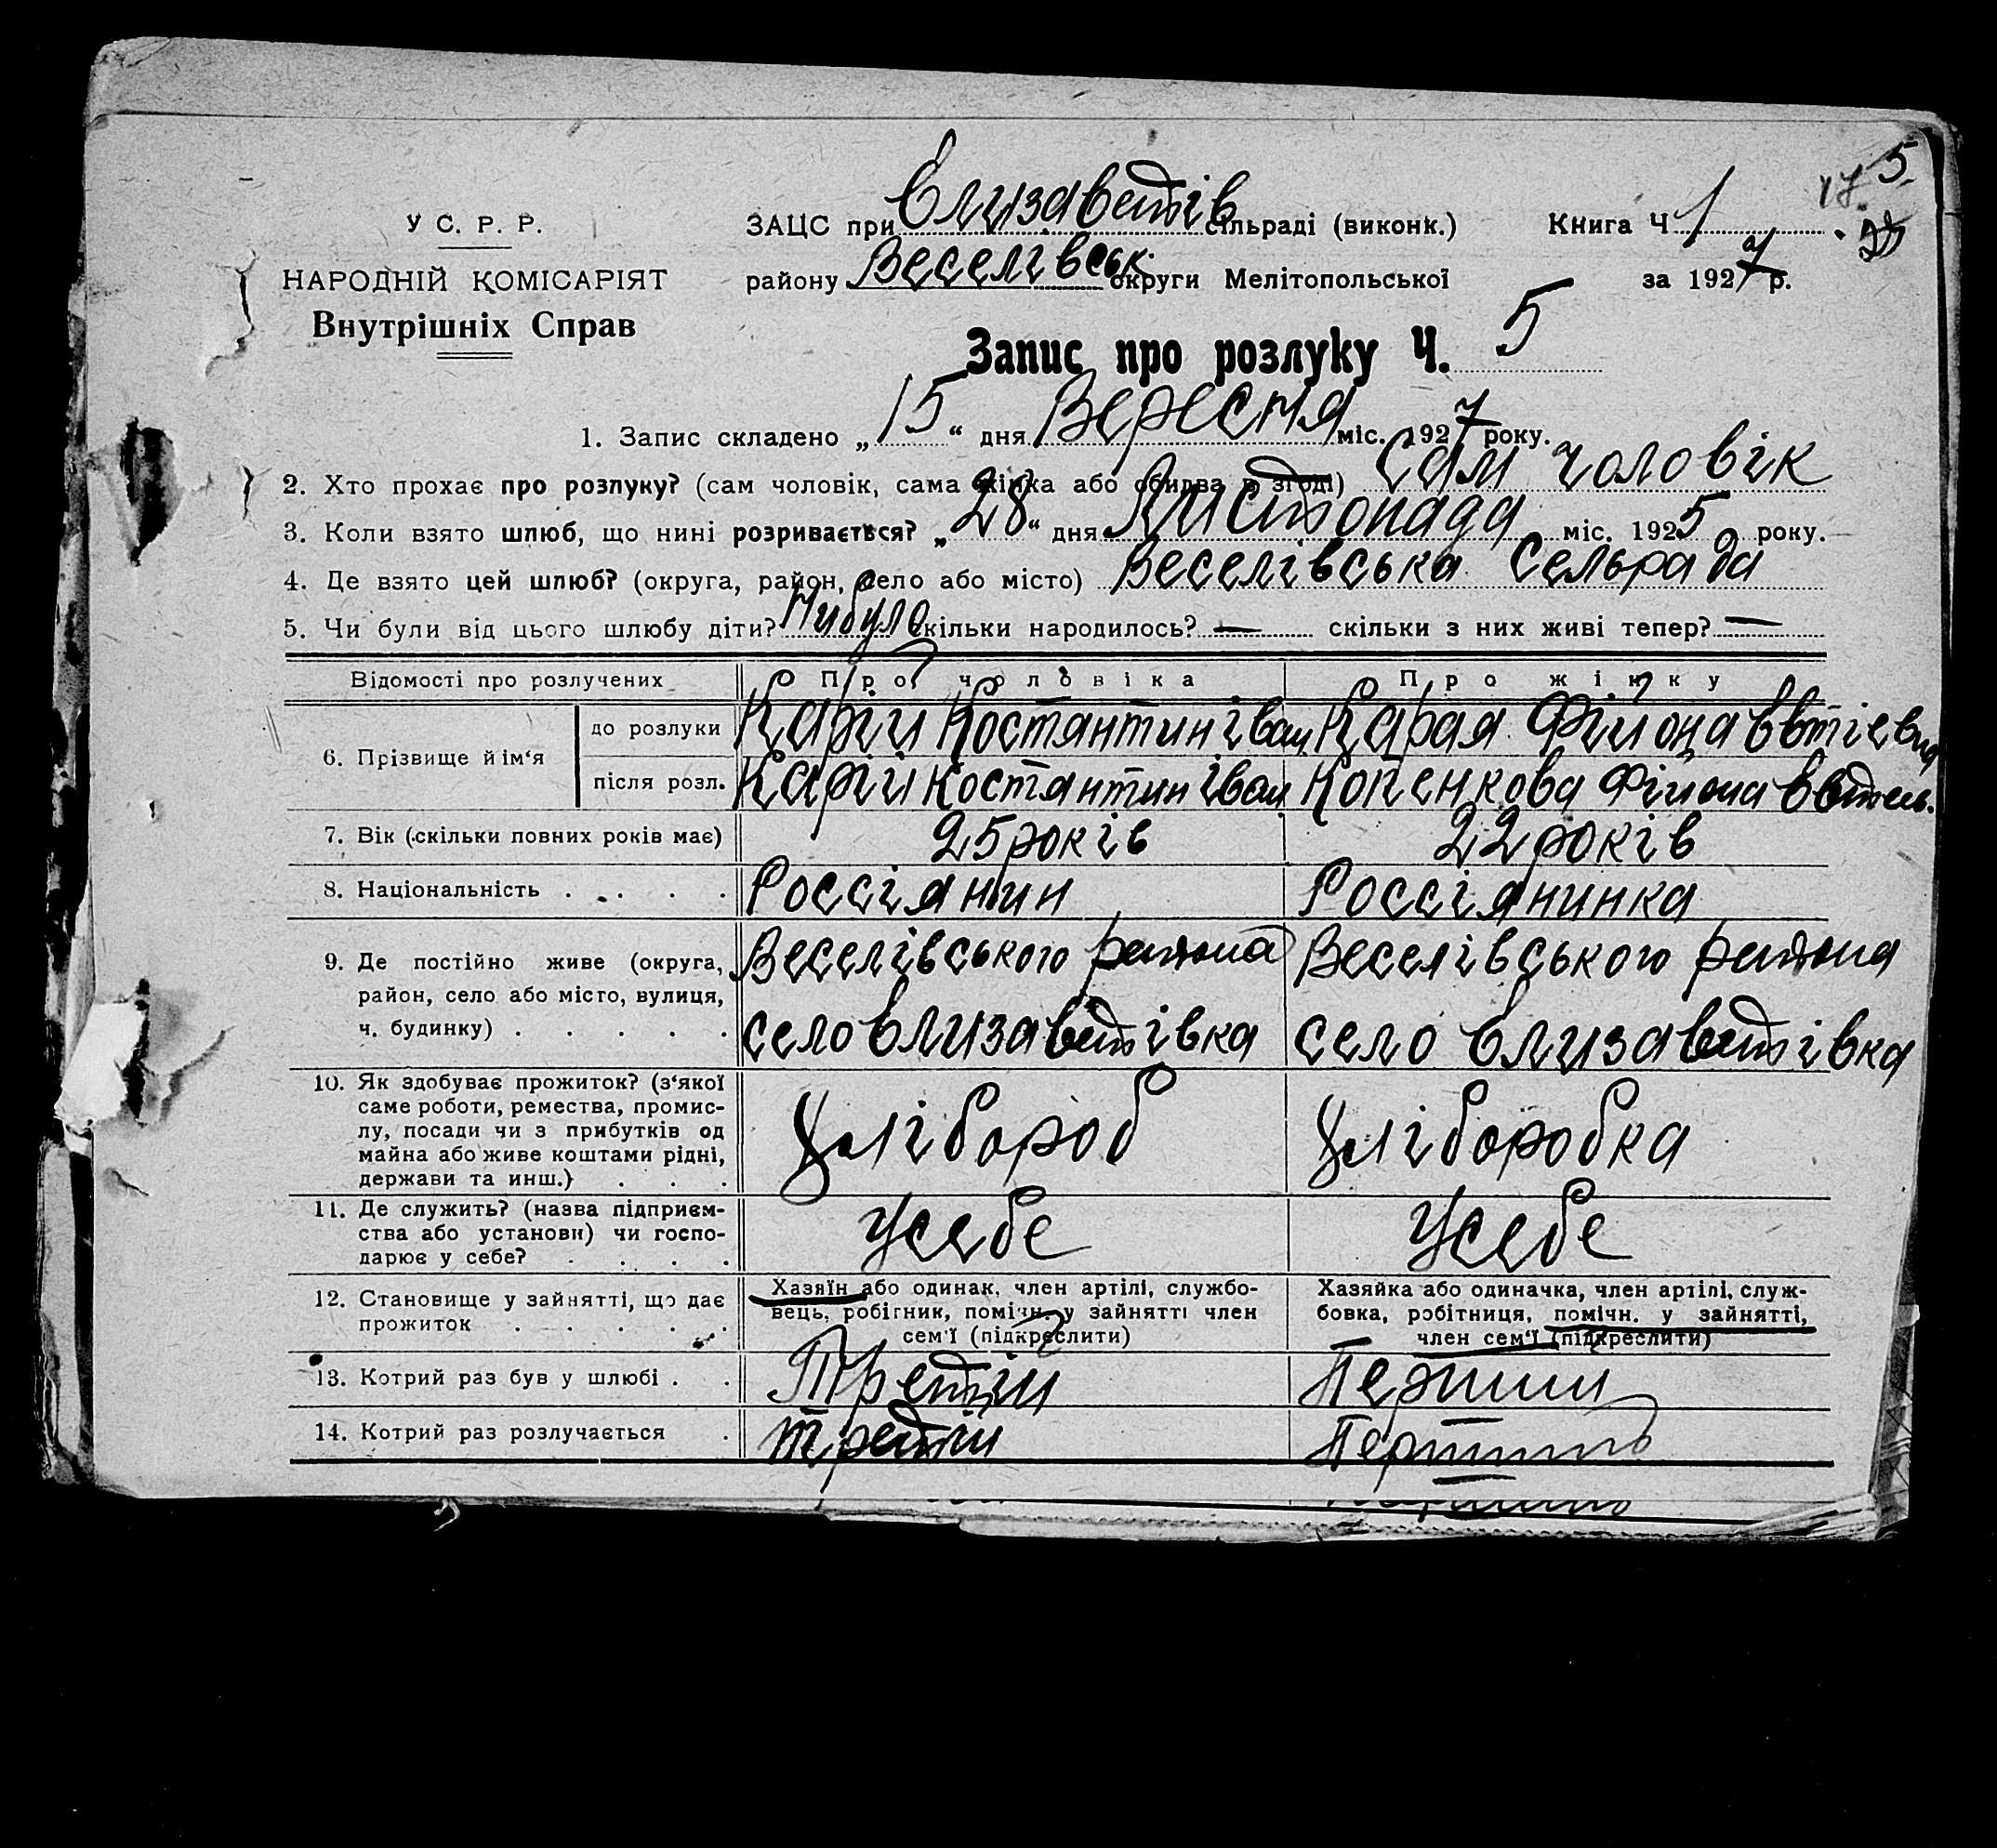 5
17.
У С. Р. Р.
НАРОДНІЙ КОМІСАРІЯТ
Внутрішніх Справ
ЗАЦС при Єлизаветів сільраді (виконк.) Книга Ч 1
району Веселівськ. округи Мелітопольської за 1927 р.
Запис про розлуку Ч. 5
1. Запис складено „15“ дня Вересня міс. 1927 року.
2. Хто прохає про розлуку? (сам чоловік, сама жінка або обидва в згоді) Сам чоловік
3. Коли взято шлюб, що нині розривається? „28“ дня Листопада міс. 1925 року.
4. Де взято цей шлюб? (округа, район, село або місто) Веселівська Сельрада
5. Чи були від цього шлюбу діти? Нибуло скільки народилось? — скільки з них живі тепер? —
Відомості про розлучених Про чоловіка Про жінку
6. Прізвище й ім‘я
до розлуки Карій Костянтин Іван. Карая Фійона Євтіевна
після розл. Карій Костянтин Іван. Копенкова Фійона
7. Вік (скільки повних років має) 25 років 22 років
8. Національність . . . . . Россіянин Россіянинка
9. Де постійно живе (округа, район, село або місто, вулиця, ч. будинку) . . . . .
Веселівського района Веселівського района
село Єлизаветівка село Єлизаветівка
10. Як здобуває прожиток? (з‘якої
саме роботи, ремества, промис-
лу, посади чи з прибутків од
майна або живе коштами рідні,
держави та инш.) . . .
Хлібороб Хліборобка
11. Де служить? (назва підприєм-
ства або установи) чи госпо-
дарює у себе? . . . .
Усебе Усебе
12. Становище у зайнятті, що дає
прожиток . . . . .
Хазяїн або одинак, член артілі, службо-
вець, робітник, помічн. у зайнятті член
сем‘ї (підкреслити)
Хазяйка або одиначка, член артілі, служ-
бовка, робітниця, помічн. у зайнятті,
член сем‘ї (підкреслити)
13. Котрий раз був у шлюбі . . Третій Перший
14. Котрий раз розлучається . третій